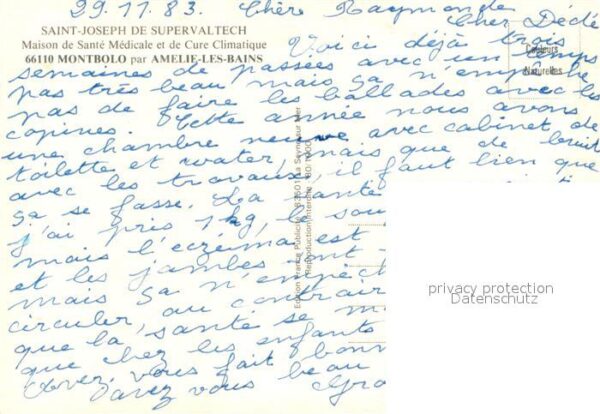 29.11.83. Chère Raymonde
Cher Dédé
SAINT-JOSEPH DE SUPERVALTECH
Maison de Santé Médicale et de Cure Climatique
66110 MONTBOLO par AMELIE-LES-BAINS
Couleurs
Naturelles
Voici déjà trois
semaines de passées avec un temps
pas très beau mais sa n'empêche
pas de faire les ballades avec les
copines. Cette année nous avons
une chambre neuve avec cabinet de
toilette et water, mais que de bruit
avec les travaux, il faut bien que
sa se fasse. La santé
j'ai pris 1 kg, le sou
mais l'eczéma est
et les jambes ont
mais sa n'empêch
circuler, au contrair
que la santé se m
que chez les enfants
Avez vous fait bonn
avez vous beau
Gro
Edition France Publicité 83501 La Seyne sur Mer
Reproduction Interdite
privacy protection
Datenschutz